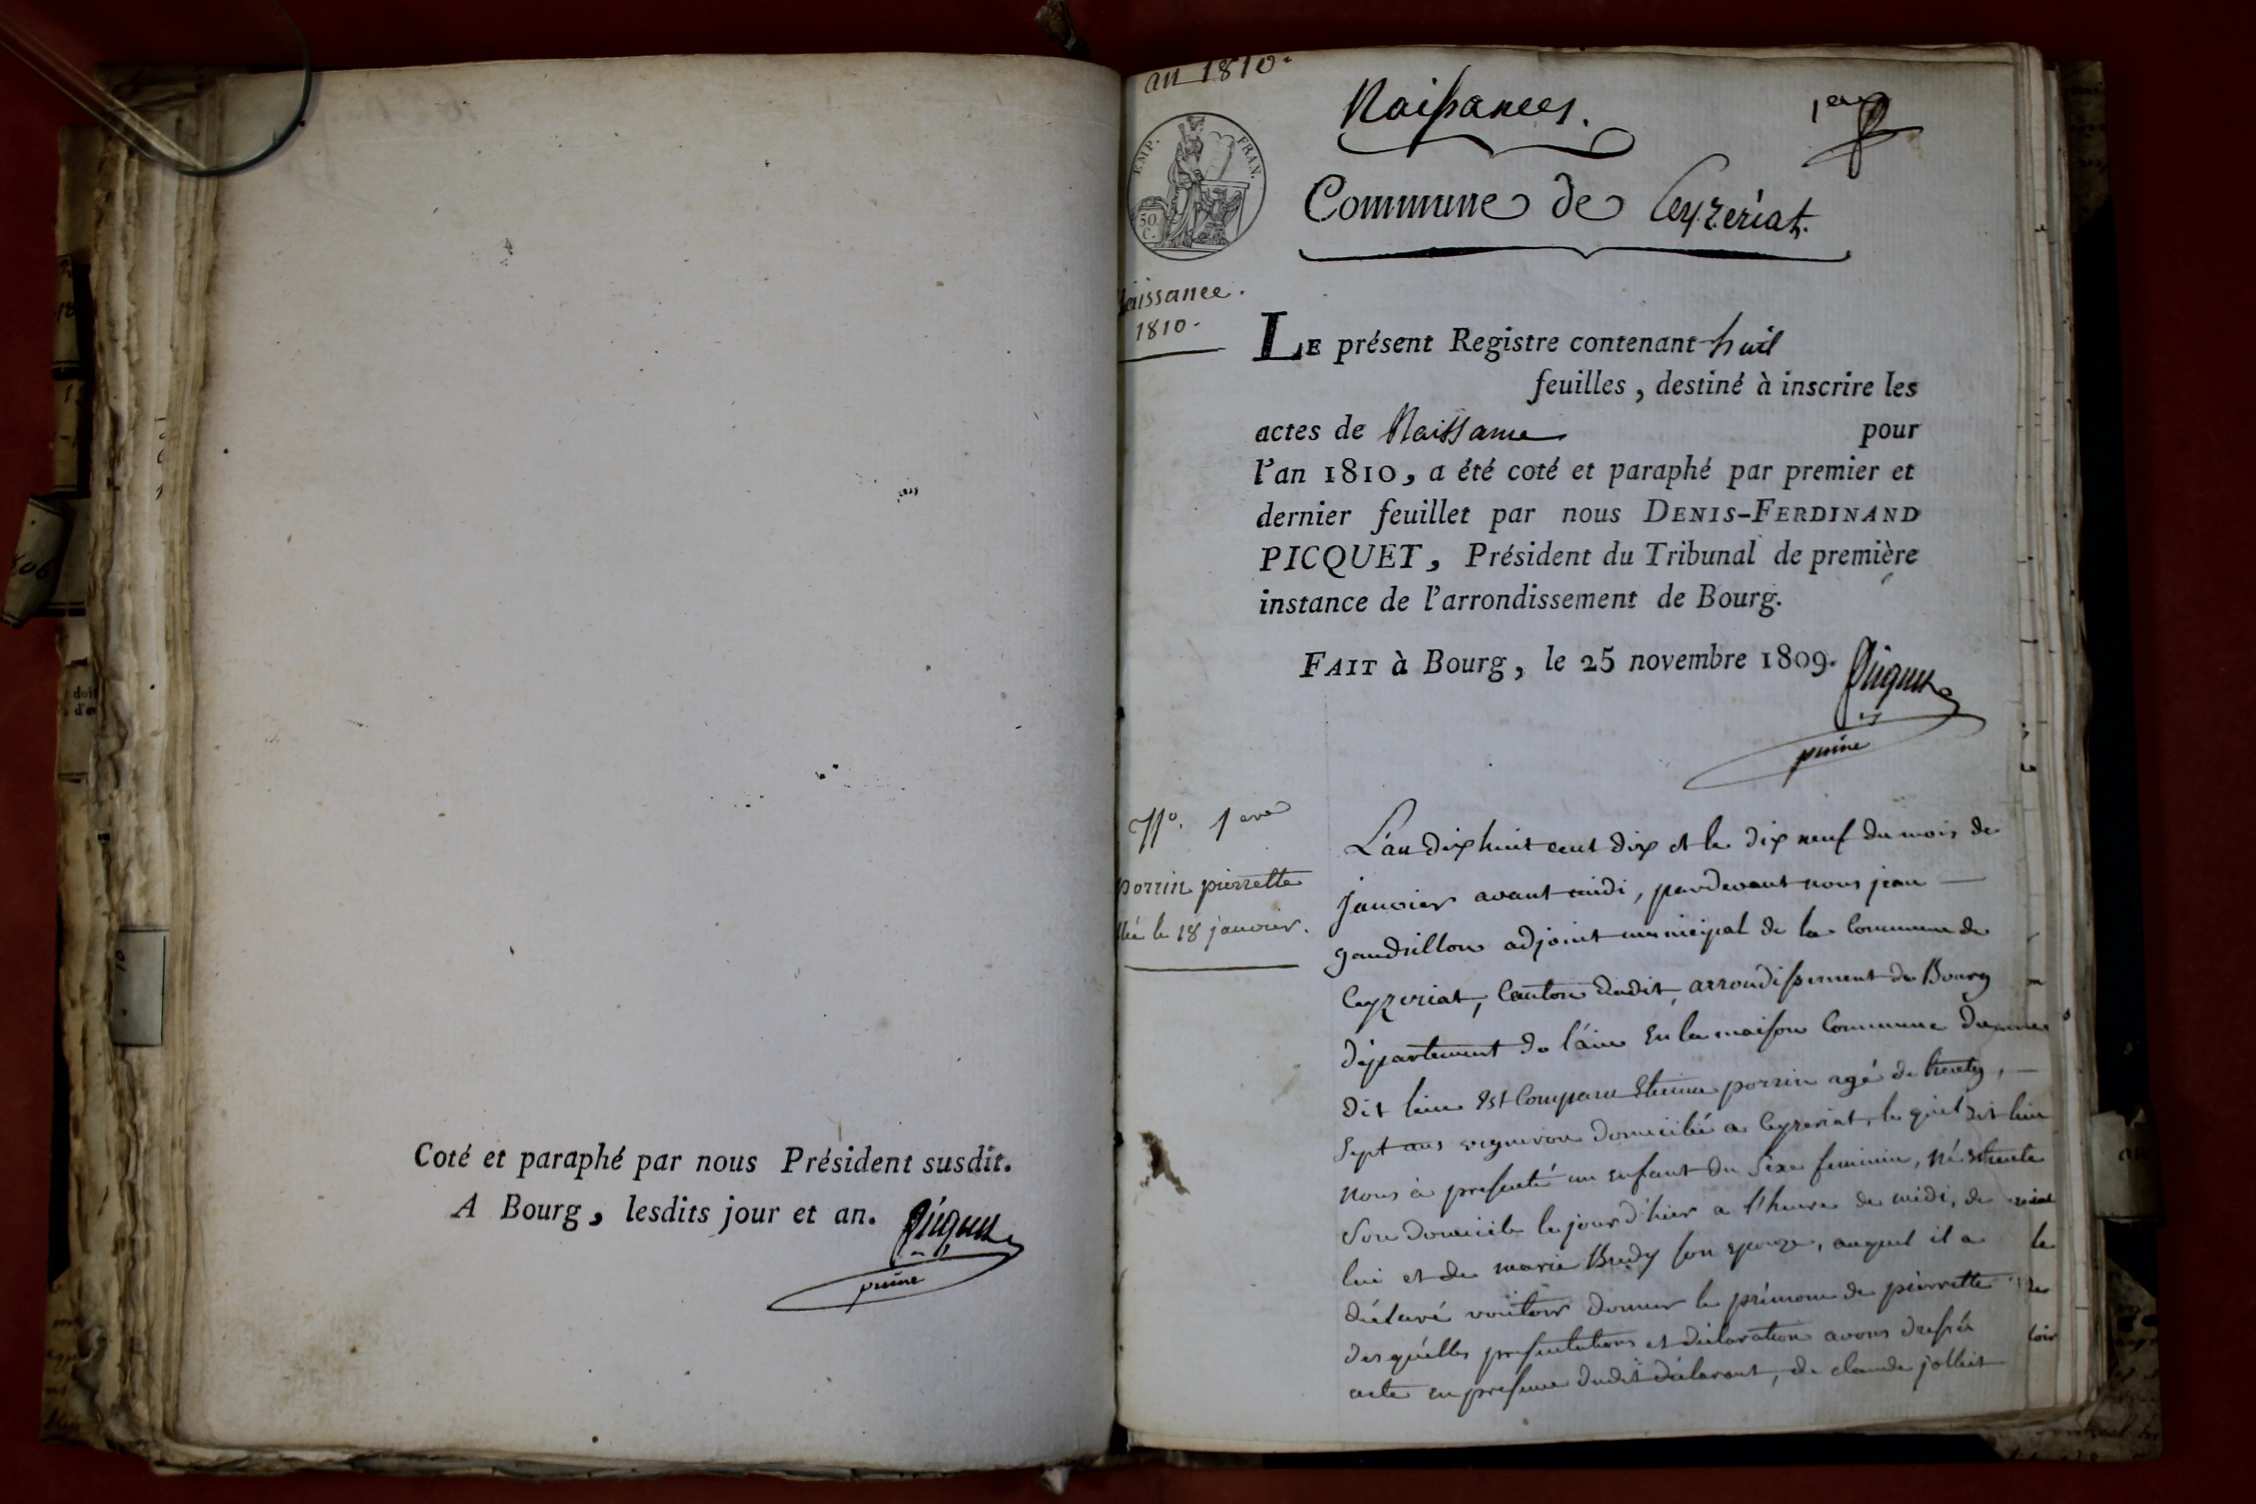 Coté et paraphé par nous Président susdit.
A Bourg, lesdits jour et an.
Picquet
an 1810.
Naissances.
1er
Commune de Ceyzeriat.
EMP. FRAN.
50 C.
Naissance.
1810.
LE présent Registre contenant huit
feuilles, destiné à inscrire les
actes de Naissance pour
l'an 1810, a été coté et paraphé par premier et
dernier feuillet par nous DENIS-FERDINAND
PICQUET, Président du Tribunal de première
instance de l'arrondissement de Bourg.
FAIT à Bourg, le 25 novembre 1809.
Picquet
No. 1ere
porrin pierrette
née le 18 janvier.
L'an dix huit cent dix et le dix neuf du mois de
janvier avant midi, pardevant nous jean
gaudrillon adjoint municipal de la Commune de
Ceyzeriat, Canton dudit, arrondissement de Bourg
département de l'ain en la maison Commune du
dit lieu Est Comparu Etienne porrin agé de trente,
sept ans vigneron domicilié a Ceyzeriat, le quel dit lieu
nous à presenté un enfant du sexe feminin, né
son domicile le jour d'hier a l'heure de midi, de
lui et de marie Bredy son epouze, auquel il a
déclaré vouloir donner le prénom de pierrette
desquélles presentations et déclaration avons dressés
acte en presence dudit déclarant, de claude jolliet